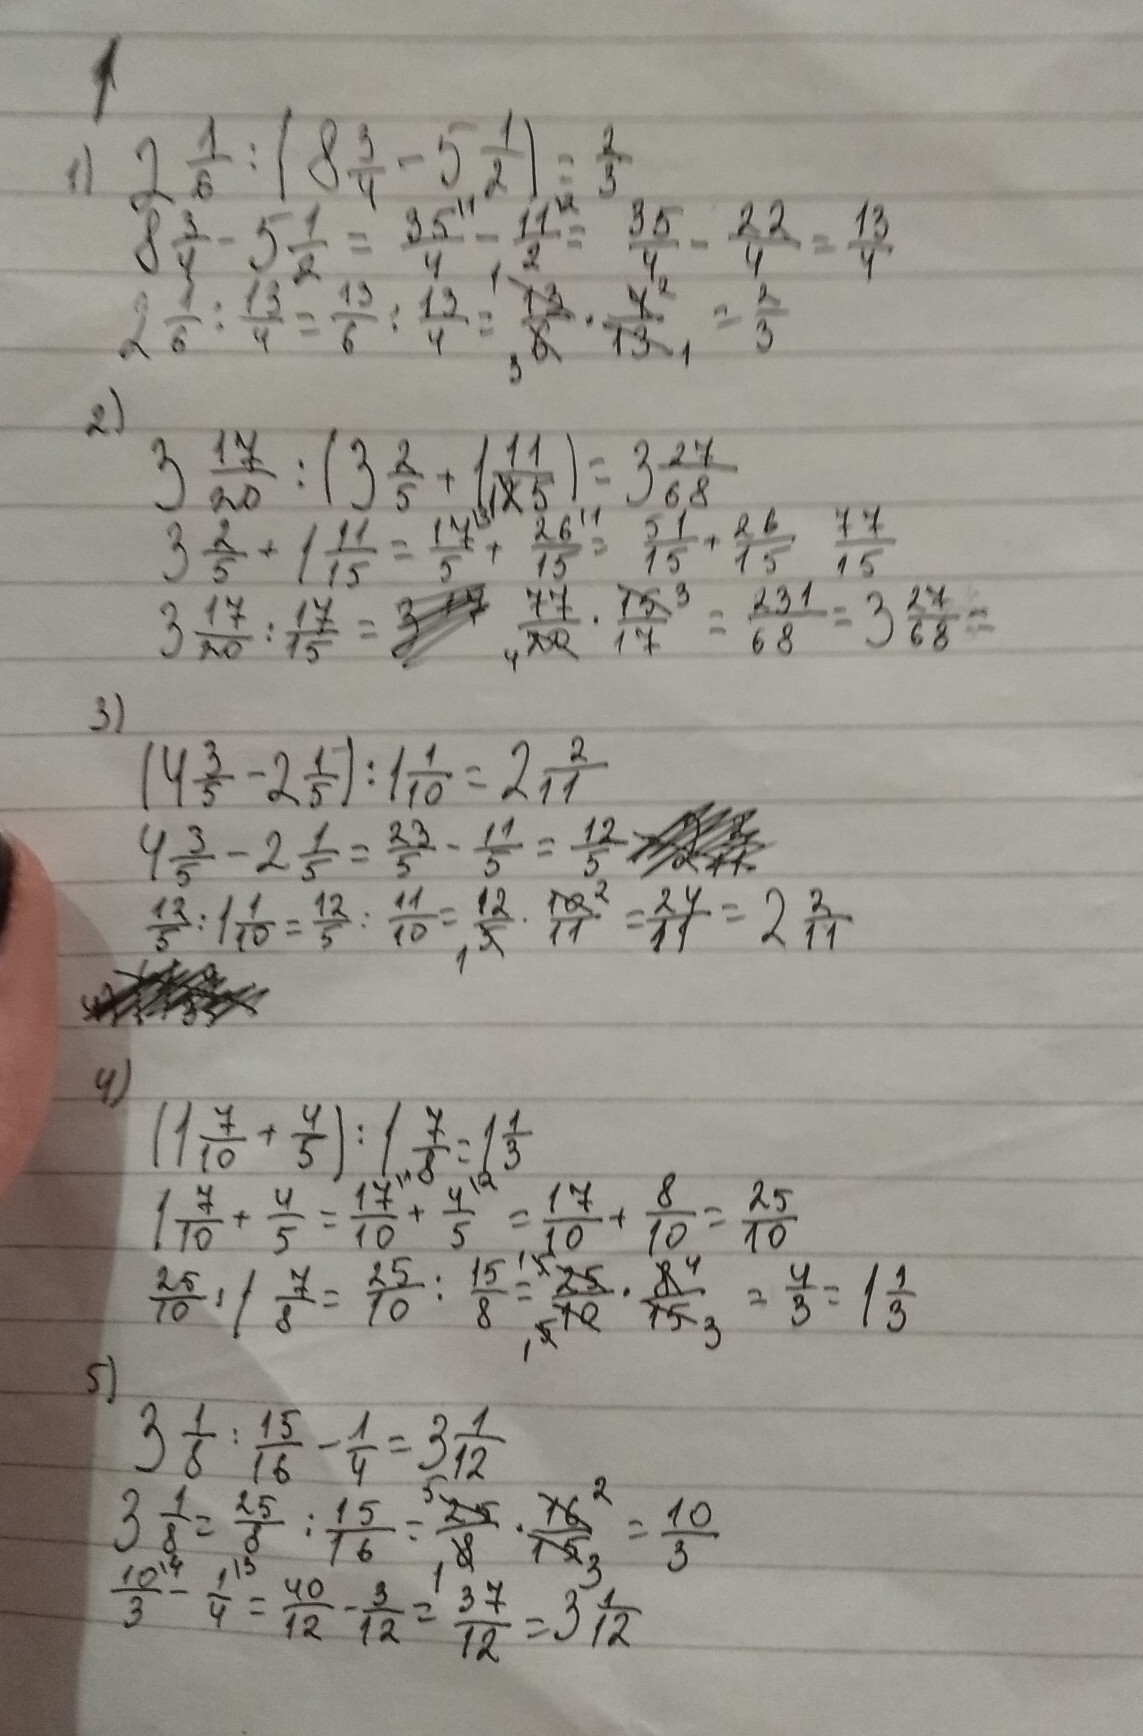 1
1) 2 1/6 : (8 3/4 - 5 1/2) = 2/3
8 3/4 - 5 1/2 = 35/4 \1 - 11/2 \2 = 35/4 - 22/4 = 13/4
2 1/6 : 13/4 = 13/6 : 13/4 = 1 13/6 3 · 4/13 2 1 = 2/3
2)
3 17/20 : (3 2/5 + 1 11/15) = 3 27/68
3 2/5 + 1 11/15 = 17/5 \3 + 26/15 \1 = 51/15 + 26/15 77/15
3 17/20 : 17/15 = 77/20 4 · 15/17 3 = 231/68 = 3 27/68 =
3)
(4 3/5 - 2 1/5) : 1 1/10 = 2 2/11
4 3/5 - 2 1/5 = 23/5 - 11/5 = 12/5
12/5 : 1 1/10 = 12/5 : 11/10 = 12/5 1 · 10/11 2 = 24/11 = 2 2/11
4)
(1 7/10 + 4/5) : 1 7/8 = 1 1/3
1 7/10 + 4/5 = 17/10 \1 + 4/5 \2 = 17/10 + 8/10 = 25/10
25/10 : 1 7/8 = 25/10 : 15/8 = 1 5 25/10 5 1 · 8/15 4 3 = 4/3 = 1 1/3
5)
3 1/8 : 15/16 - 1/4 = 3 1/12
3 1/8 = 25/8 : 15/16 = 5 25/8 1 · 16/15 2 3 = 10/3
10/3 \4 - 1/4 \3 = 40/12 - 3/12 = 37/12 = 3 1/12